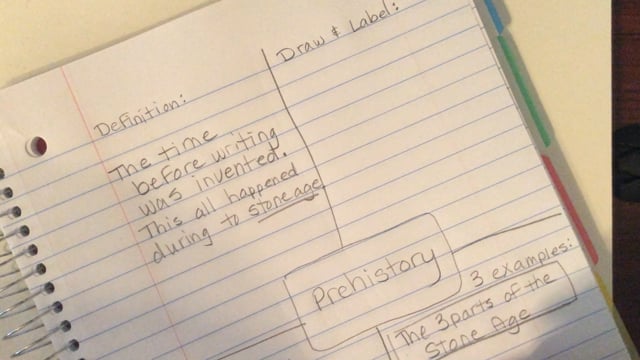 Draw & Label:
Definition:
The time
before writing
was invented.
This all happened
during to stone age
Prehistory
3 examples:
The 3 parts of the
Stone Age